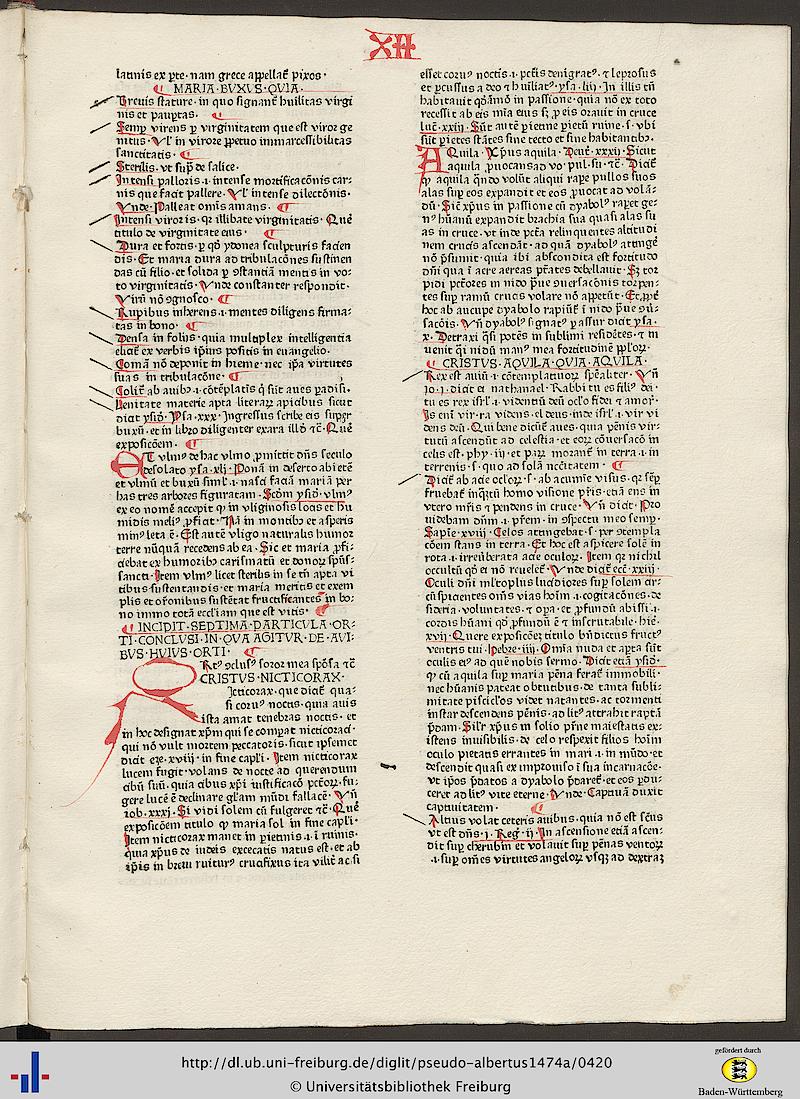 XII
latinis ex pte. nam grece appellat pixos.
MARIA. BVXVS. QVIA.
Breuis stature. in quo signant huilitas virgi
nis et paupertas.
Semp virens p virginitatem que est viror ge
nitus. Vl in virore ppetuo immarcessibilitas
sanctitatis.
Sterilis. vt sup de salice.
Intensi palloris .i. intense mortificacōnis car-
nis que facit pallere. Vl intense dilectōnis.
Vnde. Palleat omīs amans.
Intensi viroris. qr illibate virginitatis. Que
titulo de virginitate eius.
Dura et fortis. p qd ydonea sculpturis facien
dis. Et maria dura ad tribulacōnes sustinen
das cū filio. et solida p ostantiā mentis in vo-
to virginitatis. Vnde constanter respondit.
Virū nō ognosco.
Rupibus inherens .i. mentes diligens firma-
tas in bono.
Densa in folijs. quia multiplex intelligentia
elicit ex verbis ipius positis in euangelio.
Comā nō deponit in hieme. nec ipa virtutes
suas in tribulacōne.
Colit ab auibo .i. cōtēplatis q sūt aues padisi.
Penitate materie apta literar apicibus sicut
dicit ysid. Psa. xxx. Ingressus scribe eis super
buxū. et in libro diligenter exara illd tc. Que
exposicōem.
ET vlmo de hac vlmo pmittit dns seculo
desolato ysa. xlj. Ponā in deserto abietē
et vlmū et buxū siml .i. nasci faciā mariā per
has tres arbores figuratam. Scdm ysid. vlmo
ex eo nomē accepit qr in vliginosis locis et hu
midis melio pficiat. Nā in montibo et asperis
mino leta ē. Est autē vligo naturalis humor
terre nūquā recedens ab ea. Sic et maria pfi-
ciebat ex humoribo carismatū et donor spūs-
sancti. Item vlmo licet sterilis in se tn apta vi
tibus sustentandis. et maria meritis et exem
plis et orōnibus sustētat fructificantes in bo-
no immo totā eccliam que est vitis.
INCIDIT. SEPTIMA. PARTICVLA. OR-
TI. CONCLVSI. IN. QVA AGITVR. DE. AVI-
BVS. HVIVS. ORTI.
Rto oclusus soror mea sposa tc
CRISTVS. NICTICORAX.
Icticorax. que dicit qua-
si coruo noctis. quia auis
ista amat tenebras noctis. et
in hoc designat xpm qui se comparat nicticoraci.
qui nō vult mortem peccatoris. sicut ipsemet
dicit eze. xviij. in fine capli. Item nicticorax
lucem fugit. volans de nocte ad querendum
cibū suū. quia cibus xpi iustificacō pctor. fu-
gere lucē ē declinare glam mūdi fallacē. Vn
iob. xxxj. Si vidi solem cū fulgeret tc. Que
exposicōem titulo qr maria sol in fine capli.
Item nicticorax manet in pietinis .i. ī ruinis.
quia xpus de iudeis excecatis natus est. et ab
ipis in breui ruituro crucifixus ita vilit ac si
esset coruo noctis .i. pctis denigrato. t leprosus
et pcussus a deo t huiliato. ysa. liij. In illis tn
habitauit qdāmō in passione. quia nō ex toto
recessit ab eis mia eius s; p eis orauit in cruce
luc. xxiij. Sūt autē pietine pietū ruine. s. vbi
sūt pietes stātes sine tecto et sine habitantibo.
AQuila. Xpus aquila. Deut. xxxij. Sicut
aquila puocans ad vo. pul. su. tc. Dicit
q aquila qndo volūt aliqui rape pullos suos
alas sup eos expandit et eos puocat ad volā-
dū. Sic xpus in passione cū dyabolo rapet ge-
no hūanū expandit brachia sua quasi alas su
as in cruce. vt inde pcta relinquentes altitudi
nem crucis ascendāt. ad quā dyabolo attingē
nō psumit. quia ibi abscondita est fortitudo
dni qui ī aere aereas ptates debellauit. Sz tor
pidi pctores in nido praue ouersacōnis torpen-
tes sup ramū crucis volare nō appetūt. Et ppt
hoc ab aucupe dyabolo rapiūt ī nido praue oū-
sacōis. Vn dyabolo signato p assur dicit ysa.
x. Detraxi qsi potēs in sublimi residētes. t in
uenit qsi nidū mano mea fortitudinē pplor.
CRISTVS. AQVILA. QVIA. AQVILA.
Rex est auiū .i. cōtemplatiuor spēaliter. Vn
jo. i. dicit ei nathanael. Rabbi tu es filio dei.
tu es rex isrl .i. videntiū deū oclo fidei t amor.
Is eni vir. ra videns. el deus. inde isrl .i. vir vi
dens deū. Qui bene dicūt aues. quia pēnis vir-
tutū ascendūt ad celestia. et eor cōuersacō in
celis est. phy. iij. et par morant in terra .i. in
terrenis. s. quo ad solā nccitatem.
Dicit ab acie oclor. s. ab acumie visus. qr sep
fruebat inqtū homo visione pris. etiā ens in
vtero mris t pendens in cruce. Vn dicit. Pro
uidebam dnm .i. prem. in ospectu meo semp.
Sapie. xviij. Celos attingebat. s. per otempla
cōem stans in terra. Et hoc est aspicere solē in
rota .i. irreūberata acie oculor. Item qr nichil
occultū qd ei nō reuelet. Vnde dicit ecc. xxiij.
Oculi dni mltoplus lucidiores sup solem cir-
cūspicientes oms vias hoim .i. cogitacōnes. de
sideria. voluntates. t opa. et pfundū abissi .i.
cordis hūani qd pfundū ē t inscrutabile. hie.
xvij. Quere exposicōez titulo bndictus fructo
ventris tui. Hebre. iiij. Omia nuda et apta sūt
oculis eio ad que nobis sermo. Dicit etiā ysid.
q cū aquila sup maria pēna ferat immobili.
nec hūanis pateat obtutibus. de tanta subli-
mitate piscicl'os videt natantes. ac tormenti
instar descendens pēnis. ad lito attrahit raptā
pdam. Silr xpus in solio prne maiestatis ex-
istens inuisibilis. de celo respexit filios hoim
oculo pietatis errantes in mari .i. in mūdo. et
descendit quasi ex improuiso ī sua incarnacōe.
vt ipos pdatos a dyabolo pdaret. et eos pdu-
ceret ad lito vite eterne. Vnde. Captiuā duxit
captiuitatem.
Altius volat ceteris auibus. quia nō est scūs
vt est dns. j. Reg. ij. In ascensione etiā ascen-
dit sup cherubin et volauit sup pēnas ventor
.i. sup omes virtutes angelor vsqz ad dextraz
http://dl.ub.uni-freiburg.de/diglit/pseudo-albertus1474a/0420
© Universitätsbibliothek Freiburg
gefördert durch
Baden-Württemberg